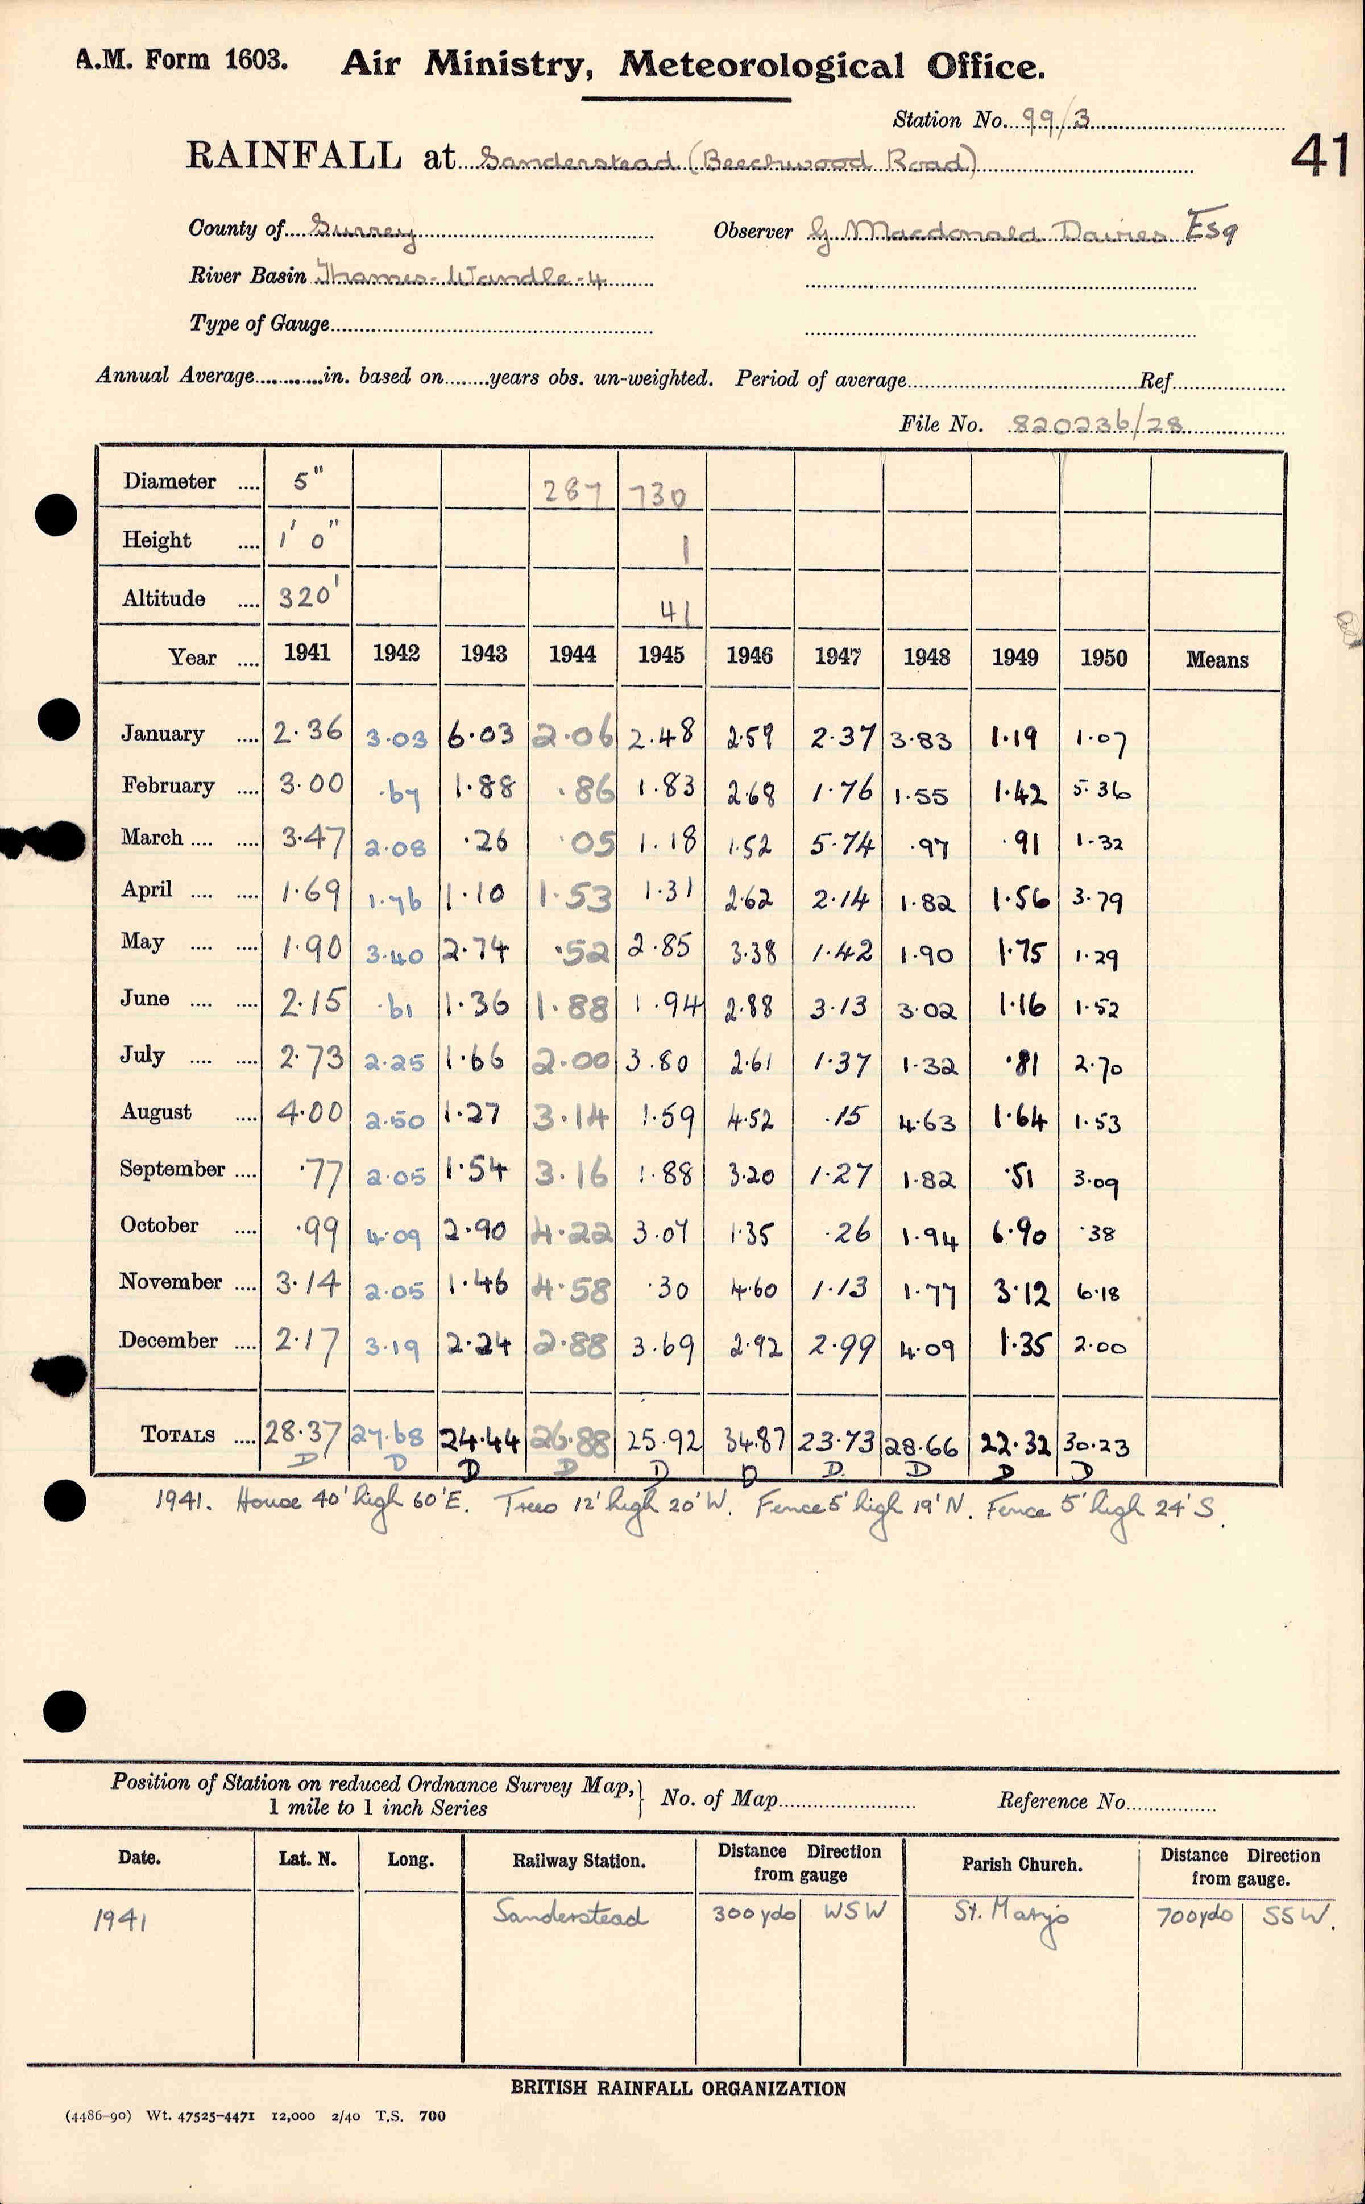 A.M. Form 1603. Air Ministry, Meteorological Office.
Station No. 99/3
41
RAINFALL at Sanderstead (Beechwood Road)
County of Surrey Observer G Macdonald Davies Esq
River Basin Thames-Wandle-4
Type of Gauge
Annual Average in. based on years obs. un-weighted. Period of average Ref
File No. 820236/28
Diameter 5" 287 730
Height 1' 0" 1
Altitude 320' 41
Year 1941 1942 1943 1944 1945 1946 1947 1948 1949 1950 Means
January 2.36 3.03 6.03 2.06 2.48 2.59 2.37 3.83 1.19 1.07
February 3.00 .67 1.88 .86 1.83 2.68 1.76 1.55 1.42 5.36
March 3.47 2.08 .26 .05 1.18 1.52 5.74 .97 .91 1.32
April 1.69 1.76 1.10 1.53 1.31 2.62 2.14 1.82 1.56 3.79
May 1.90 3.40 2.74 .52 2.85 3.38 1.42 1.90 1.75 1.29
June 2.15 .61 1.36 1.88 1.94 2.88 3.13 3.02 1.16 1.52
July 2.73 2.25 1.66 2.00 3.80 2.61 1.37 1.32 .81 2.70
August 4.00 2.50 1.27 3.14 1.59 4.52 .15 4.63 1.64 1.53
September .77 2.05 1.54 3.16 1.88 3.20 1.27 1.82 .51 3.09
October .99 4.09 2.90 4.22 3.07 1.35 .26 1.94 6.90 .38
November 3.14 2.05 1.46 4.58 .30 4.60 1.13 1.77 3.12 6.18
December 2.17 3.19 2.24 2.88 3.69 2.92 2.99 4.09 1.35 2.00
TOTALS 28.37 27.68 24.44 26.88 25.92 34.87 23.73 28.66 22.32 30.23
D D D D D D D D D D
1941. House 40' high 60' E. Trees 12' high 20' W. Fence 5' high 19' N. Fence 5' high 24' S.
Position of Station on reduced Ordnance Survey Map, 1 mile to 1 inch Series } No. of Map Reference No.
Date. Lat. N. Long. Railway Station. Distance Direction from gauge Parish Church. Distance Direction from gauge.
1941 Sanderstead 300 yds WSW St. Mary's 700 yds SSW.
BRITISH RAINFALL ORGANIZATION
(4486-90) Wt. 47525-4471 12,000 2/40 T.S. 700